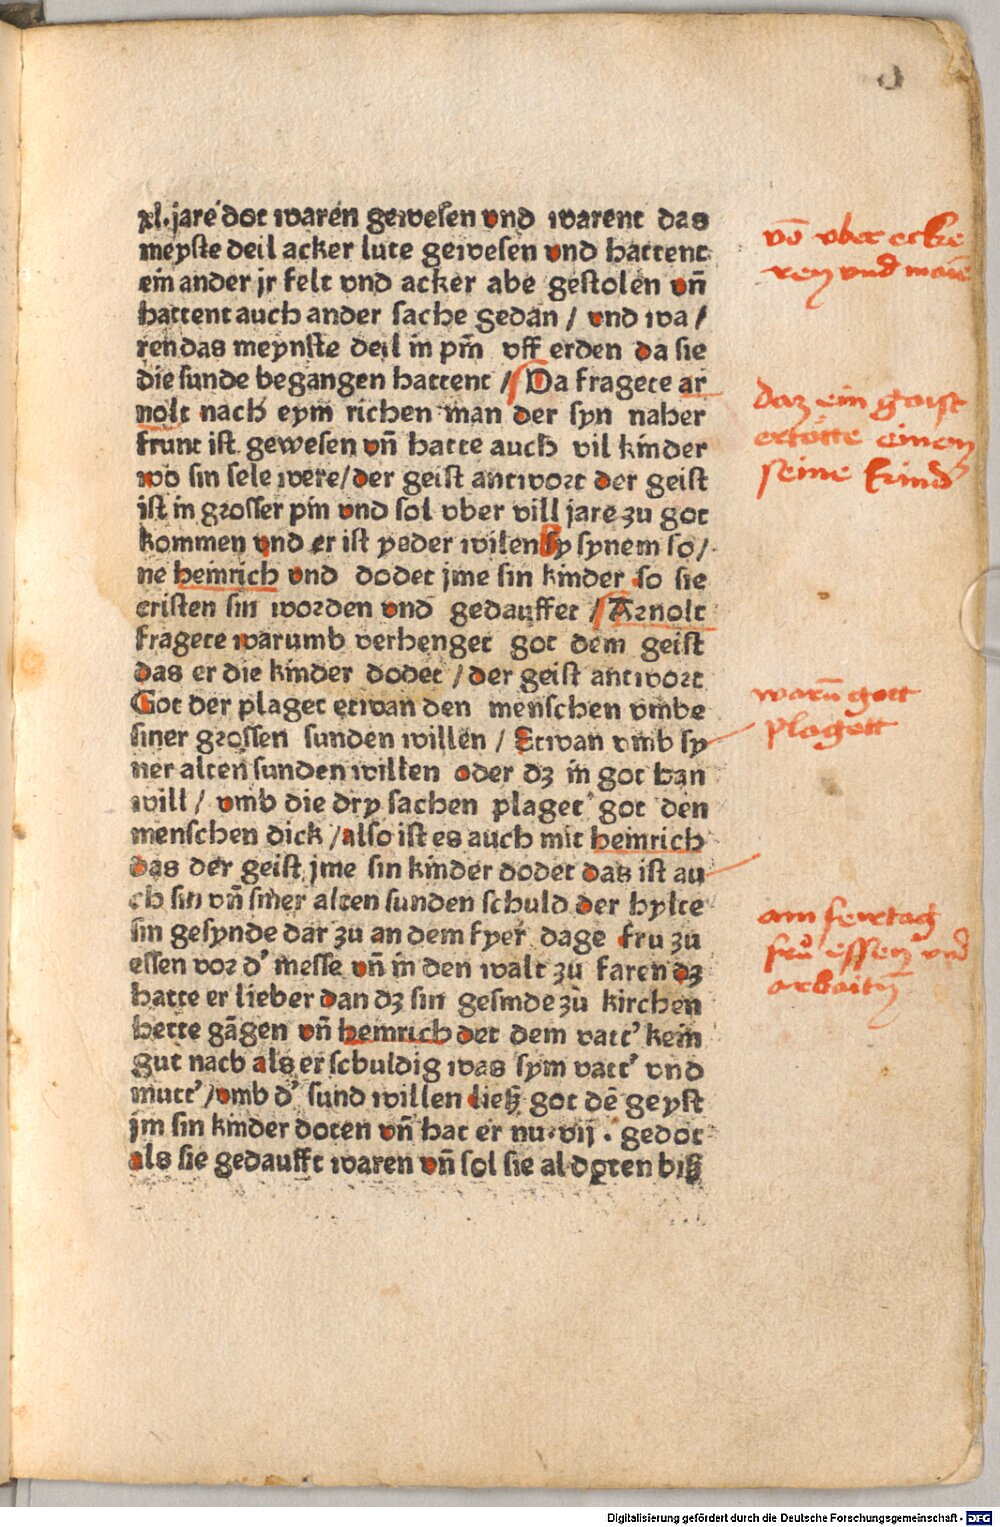 xl. jare dot waren gewesen vnd warent das
meyste deil acker lute gewesen vnd hattent
ein ander jr felt vnd acker abe gestolen vn̄
hattent auch ander sache gedan / vnd wa /
ren das meynste deil in pin̄ vff erden da sie
die sunde begangen hattent / Da fragete ar
nolt nach eym richen man der syn naher
frunt ist gewesen vn̄ hatte auch vil kinder
wo sin sele were / der geist antwort der geist
ist in grosser pin vnd sol vber vill jare zu got
kommen vnd er ist yeder wilen by synem so /
ne heinrich vnd dodet jme sin kinder so sie
cristen sin worden vnd gedauffet / Arnolt
fragete warumb verhenget got dem geist
das er die kinder dodet / der geist antwort
Got der plaget etwan den menschen vmbe
siner grossen sunden willen / Etwan vmb sy
ner alten sunden willen oder dz in got han
will / vmb die dry sachen plaget got den
menschen dick / also ist es auch mit heinrich
das der geist jme sin kinder dodet das ist au
ch sin vn̄ siner alten sunden schuld der hylte
sin gesynde dar zu an dem fyer dage fru zu
essen vor d' messe vn̄ in den walt zu faren dz
hatte er lieber dan dz sin gesinde zu kirchen
hette gāgen vn̄ heinrich det dem vatt' kein
gut nach als er schuldig was sym vatt' vnd
mutt' / vmb d' sund willen ließ got dē geyst
jm sin kinder doten vn̄ hat er nu . vij . gedot
als sie gedaufft waren vn̄ sol sie al doten biß
vō vber ecke
ren vnd maiē
daz ein gaist
ertotte einem
seine kind
warū gott
plagett
am feirtag
fru essen vnd
arbaitn̄
Digitalisierung gefördert durch die Deutsche Forschungsgemeinschaft - DFG